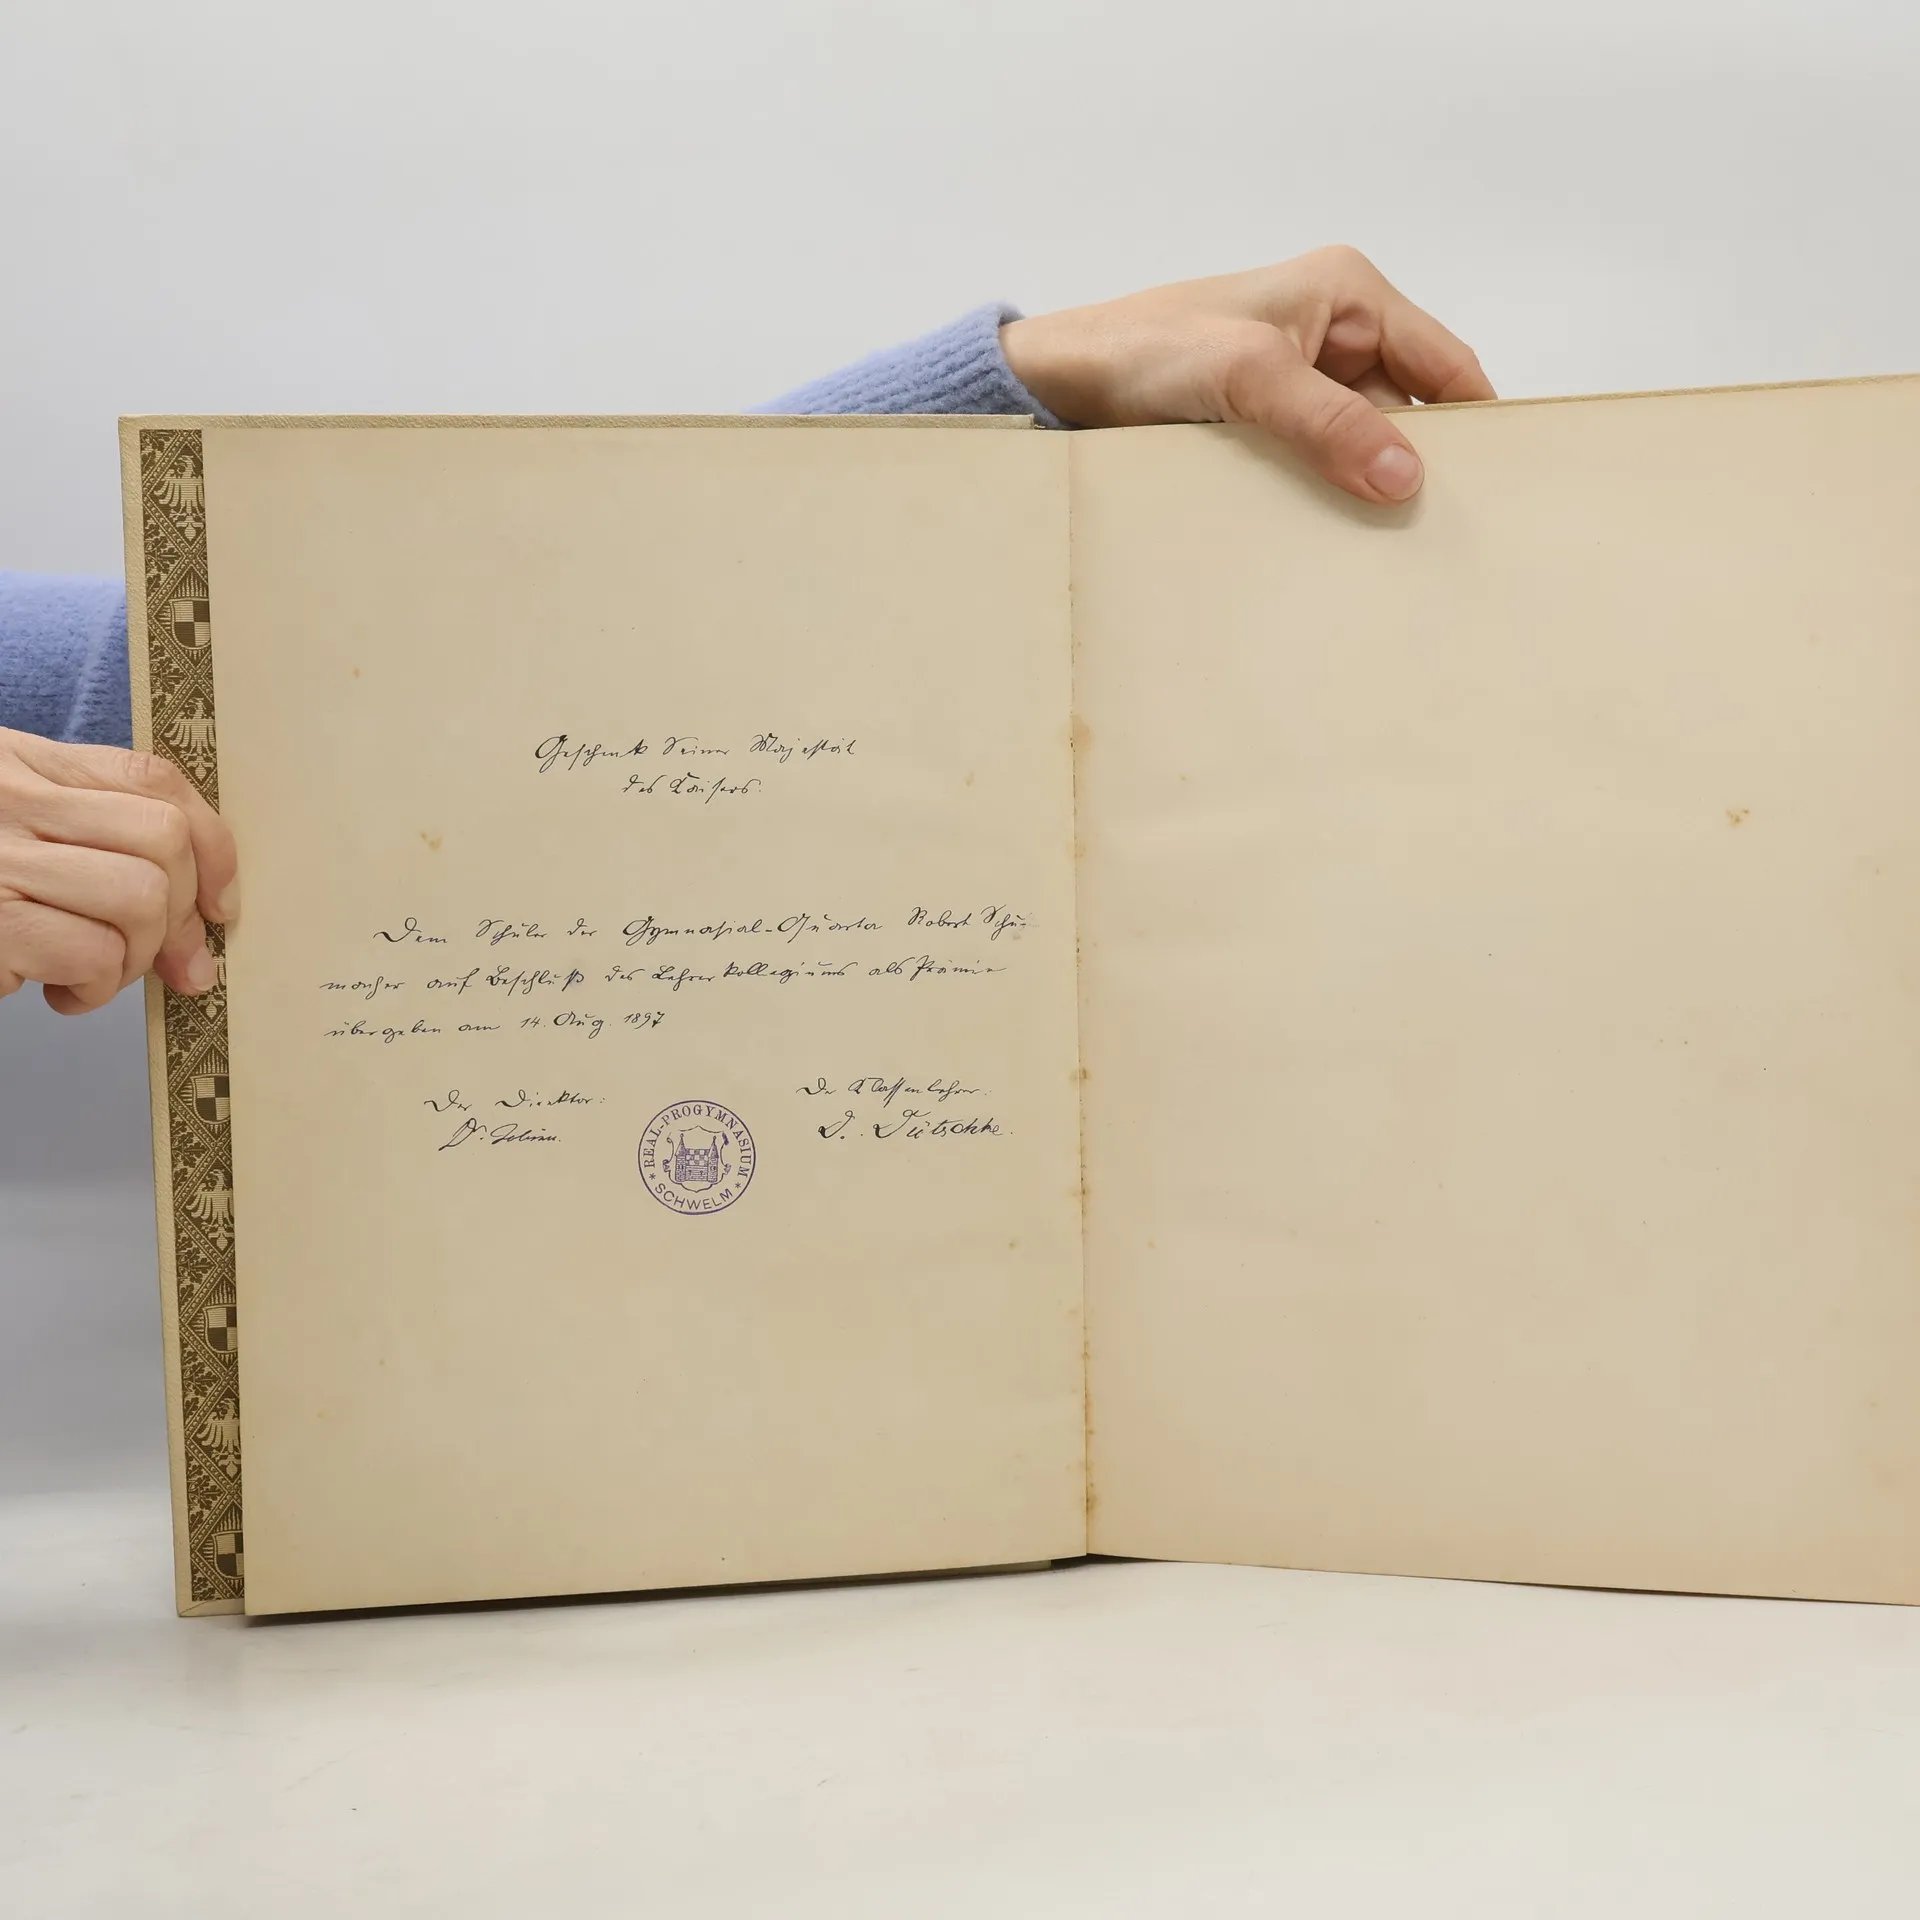 Geschenk Seiner Majestät
des Kaisers.
Dem Schüler der Gymnasial-Quarta Robert Schu-
macher auf Beschluß des Lehrerkollegiums als Prämie
übergeben am 14. Aug. 1897
Der Direktor:
Der Klassenlehrer:
Dr.
D. Tütschke.
REAL-PROGYMNASIUM
* SCHWELM *